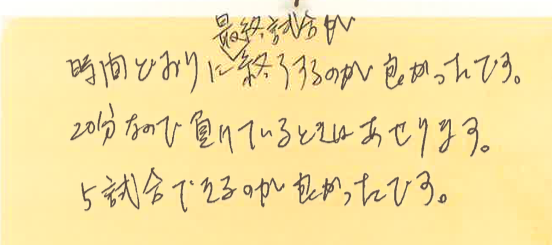 最終試合が
時間どおりに終了するのが良かったです。
20分なので負けているときはあせります。
5試合できるのが良かったです。